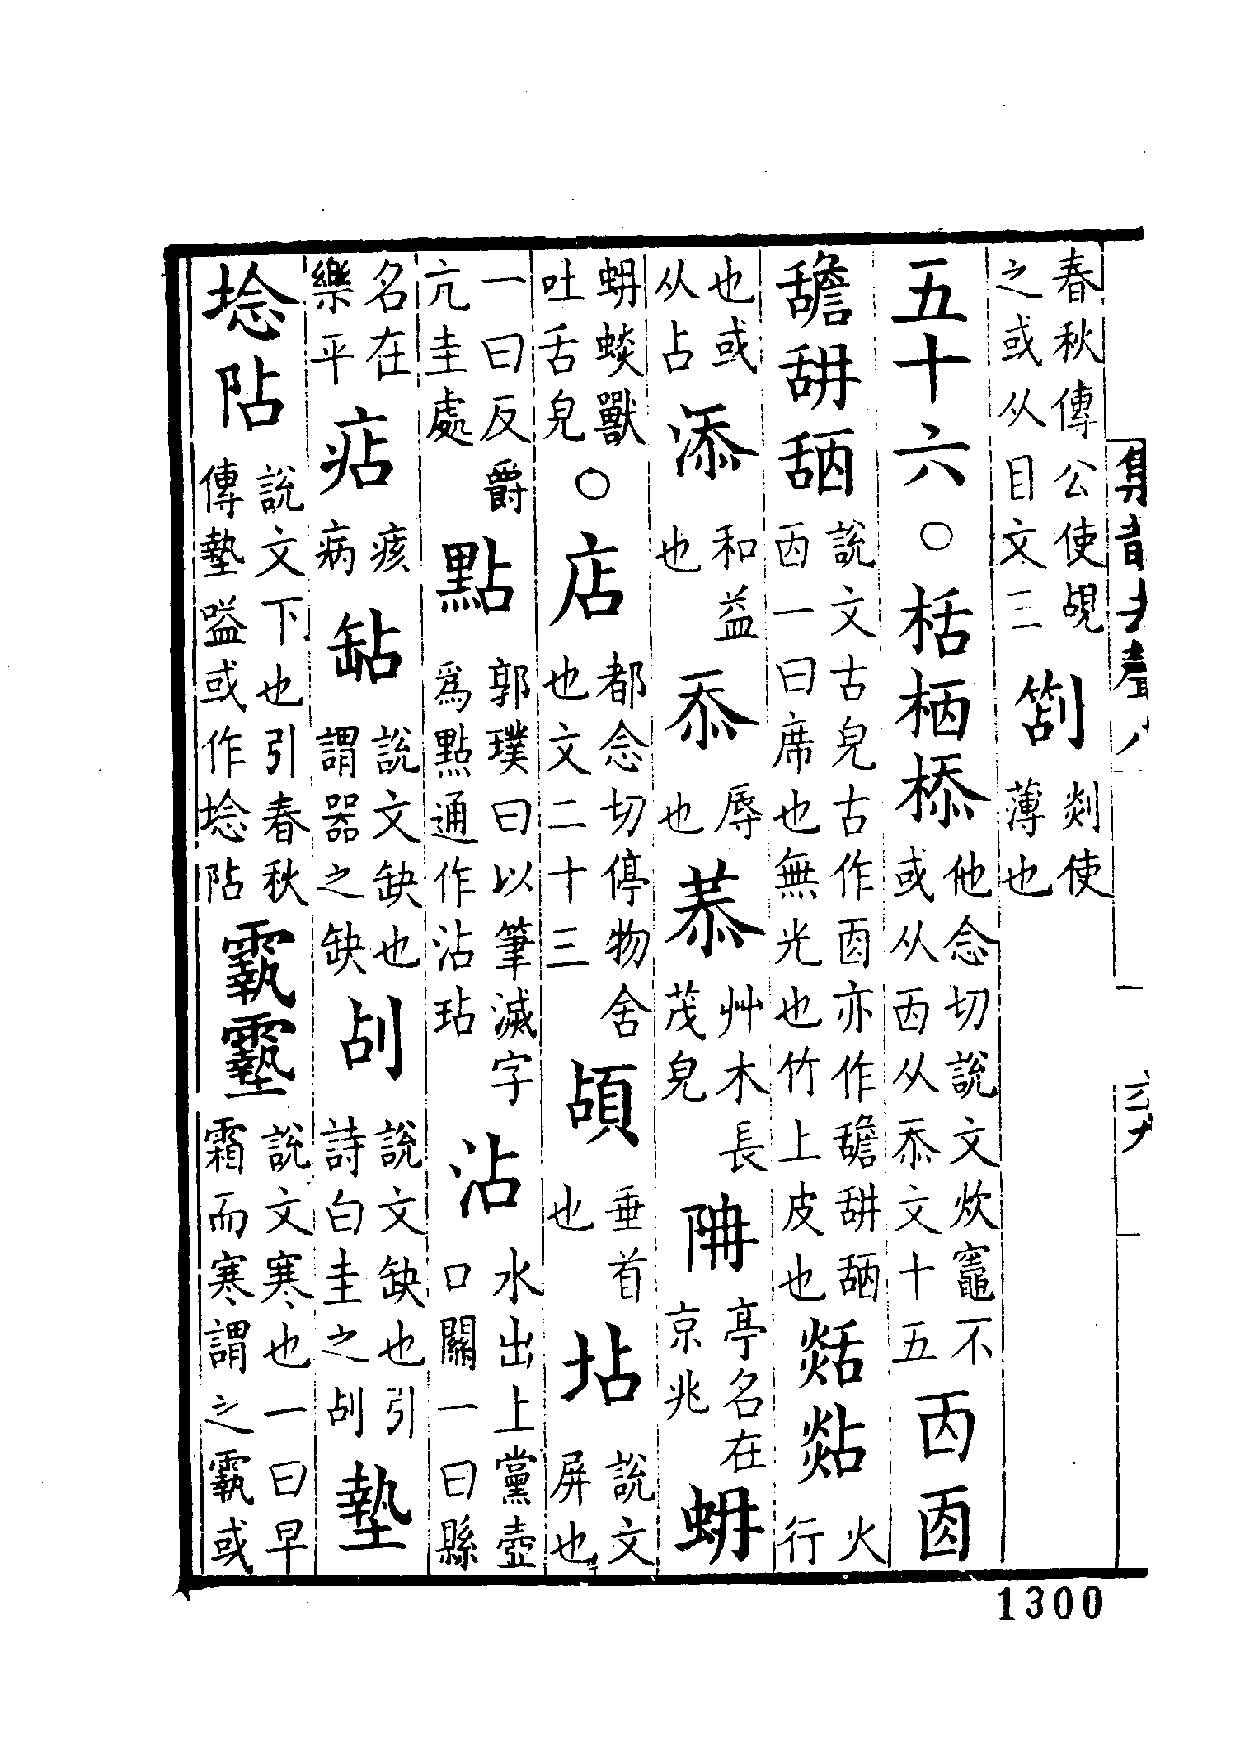 春秋傳公使覘之或从目文三 劄 剡使薄也
五十六○栝㮇㮇 他念切說文炊竈不或从㐁从忝文十五 㐁㐁
䑙䑙䑙 說文古皃古作㐁亦作㐁一曰席也無光也竹上皮也 煔 火行
也或从占 添 和益也 忝 辱也 菾 艸木長茂皃 䧟 亭名在京兆 蚦
蚦蛺獸吐舌皃○店 都念切停物舍也文二十三 䪴 垂首也 坫 說文屏也
一曰反爵亢圭處 點 郭璞曰以筆滅字爲點通作沾玷 沾 水出上黨壺口關一曰縣
名在樂平 痁 痎病 㸃 說文缺也謂器之缺 刮 說文缺也引詩白圭之刮 墊
埝阽 說文下也引春秋傳墊隘或作埝阽 霵霵 說文寒也一曰早霜而寒謂之霵或
集韻去聲八
一
三九
1300